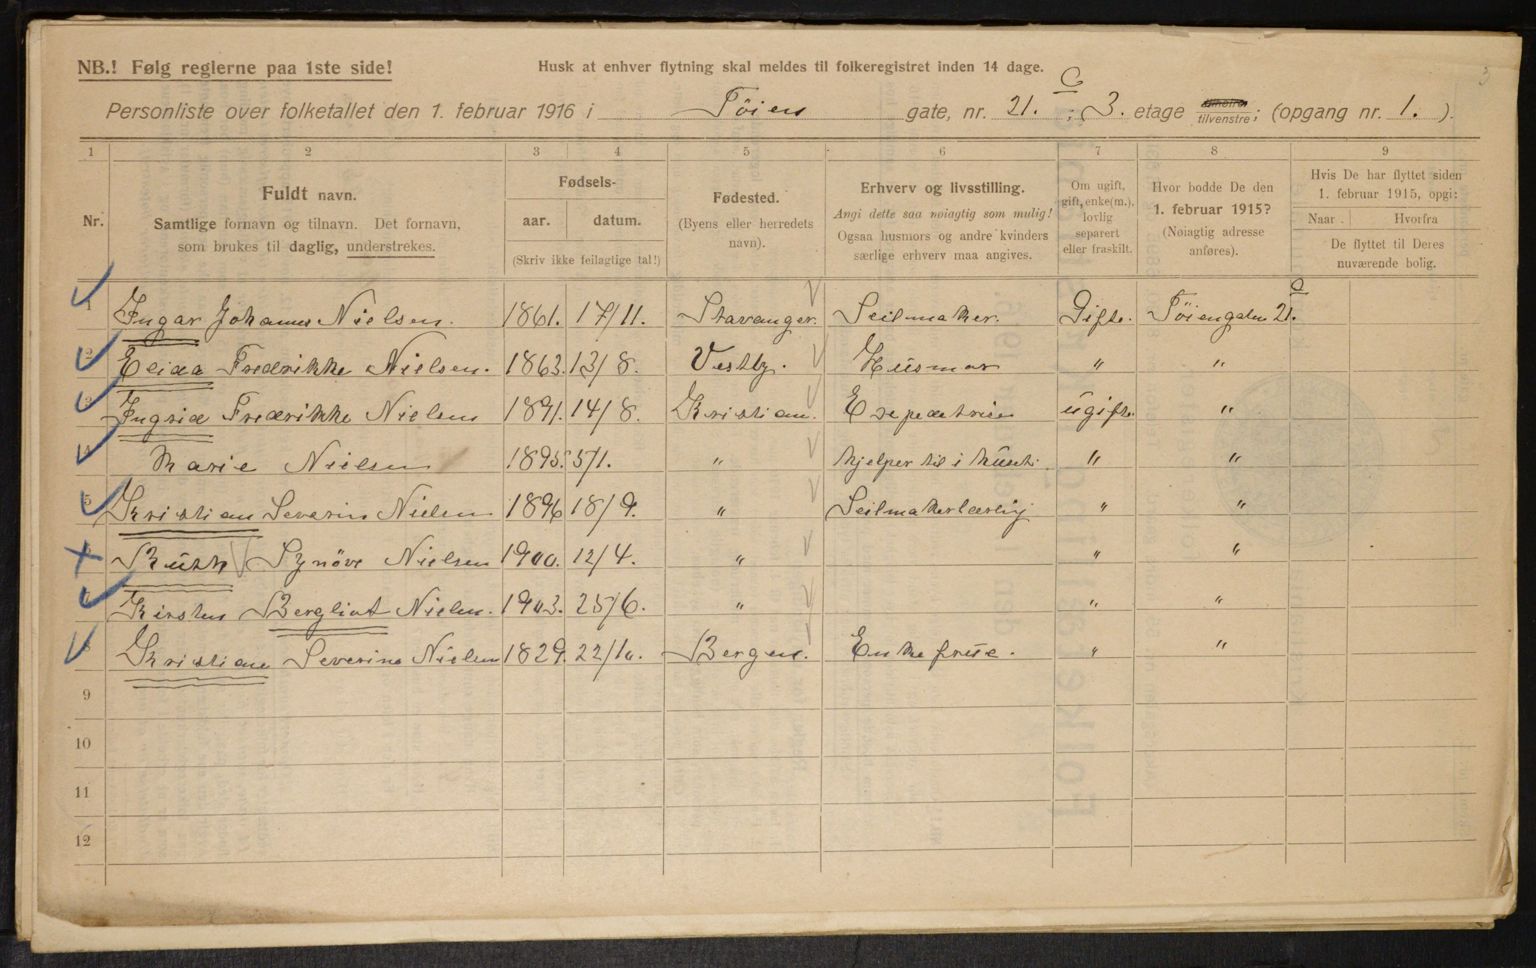 NB.! Følg reglerne paa 1ste side!
Husk at enhver flytning skal meldes til folkeregistret inden 14 dage.
Personliste over folketallet den 1. februar 1916 i Töien gate, nr. 21. c ; 3. etage tilhøire tilvenstre; (opgang nr. 1. ).
1 2 3 4 5 6 7 8 9
Nr.
Fuldt navn.
Samtlige fornavn og tilnavn. Det fornavn,
som brukes til daglig, understrekes.
Fødsels-
aar. datum.
(Skriv ikke feilagtige tal!)
Fødested.
(Byens eller herredets
navn).
Erhverv og livsstilling.
Angi dette saa nøiagtig som mulig!
Ogsaa husmors og andre kvinders
særlige erhverv maa angives.
Om ugift,
gift, enke(m.),
lovlig
separert
eller fraskilt.
Hvor bodde De den
1. februar 1915?
(Nøiagtig adresse
anføres).
Hvis De har flyttet siden
1. februar 1915, opgi:
Naar. Hvorfra
De flyttet til Deres
nuværende bolig.
1 Ingar Johannes Nielsen. 1861. 17/11. Stavanger. Seilmaker. Gifte. Töiengaten 21. c
2 Elida Fredrikke Nielsen. 1863. 13/8. Vestby. Husmor " "
3 Ingrid Fredrikke Nielsen 1891. 14/8. Kristian. Expeditrice ugifte. "
4 Marie Nielsen 1895. 5/1. " hjelper til i huset. " "
5 Kristian Severin Nielsen 1896 18/9. " Seilmakerlærling " "
6 Ruth Synöve Nielsen 1900. 12/4. " " "
7 Kirsten Bergliot Nielsen. 1903. 25/6. " " "
8 Kristiane Severine Nielsen 1829. 22/10. Bergen. Enkefrue. " "
9
10
11
12